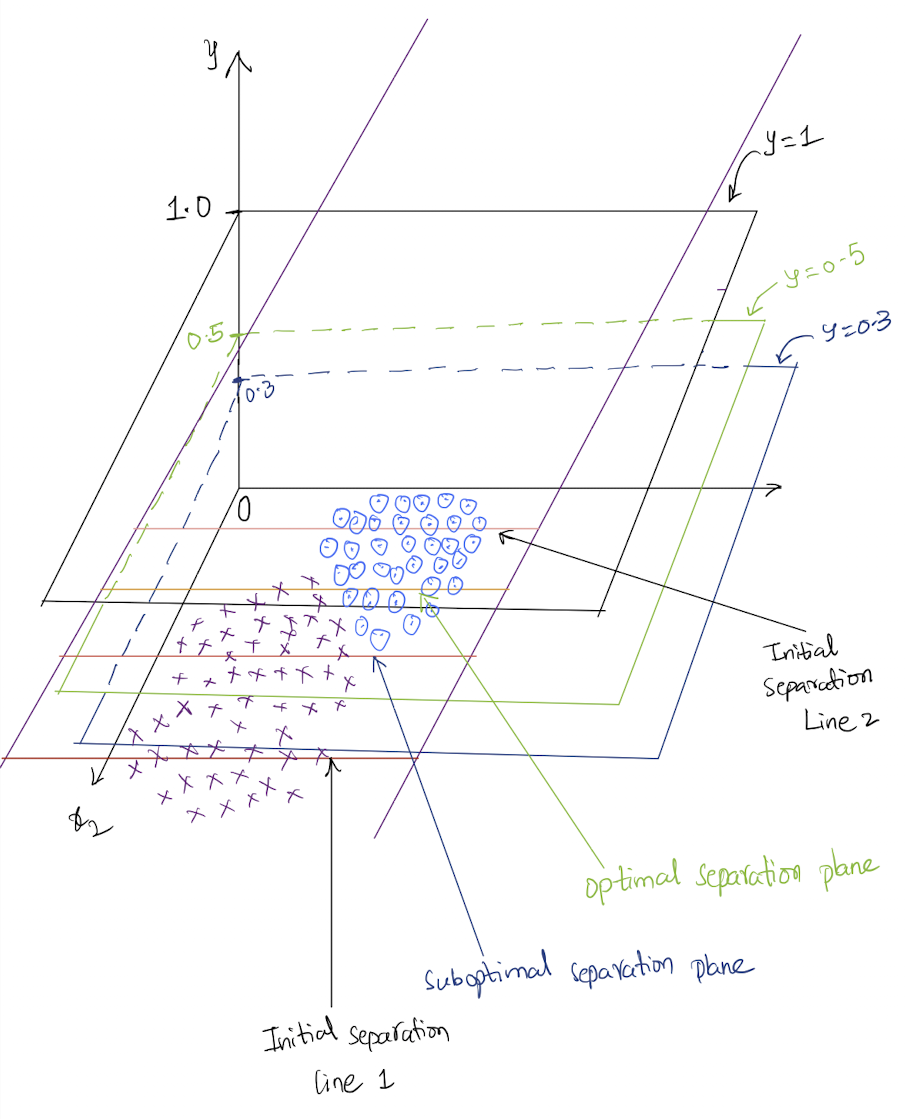 y
y=1
1.0
y=0.5
0.5
y=0.3
0.3
0
Initial
Separation
Line 2
x2
optimal separation plane
suboptimal separation plane
Initial separation
line 1